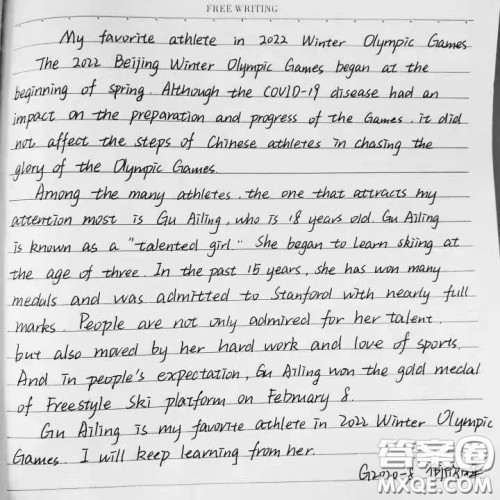 FREE WRITING
My favorite athlete in 2022 Winter Olympic Games
The 2022 Beijing Winter Olympic Games began at the
beginning of spring. Although the COVID-19 disease had an
impact on the preparation and progress of the Games. it did
not affect the steps of Chinese athletes in chasing the
glory of the Olympic Games.
Among the many athletes, the one that attracts my
attention most is Gu Ailing, who is 18 years old. Gu Ailing
is known as a "talented girl." She began to learn skiing at
the age of three. In the past 15 years, she has won many
medals and was admitted to Stanford with nearly full
marks. People are not only admired for her talent.
but also moved by her hard work and love of sports.
And in people's expectation, Gu Ailing won the gold medal
of Freestyle Ski platform on February 8.
Gu Ailing is my favorite athlete in 2022 Winter Olympic
Games. I will keep learning from her.
G2020-8
答案圈
MXQE.COM